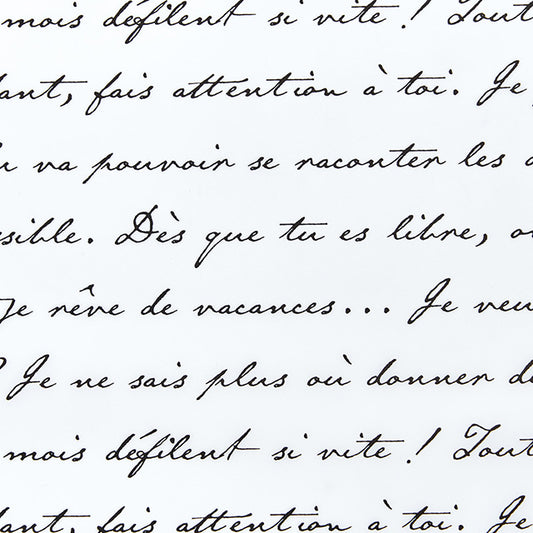 mois défilent si vite ! Tout
dant, fais attention à toi. Je
va pouvoir se raconter les
ssible. Dès que tu es libre, o
Je rêve de vacances... Je veu
? Je ne sais plus où donner d
mois défilent si vite ! Tout
dant, fais attention à toi. Je